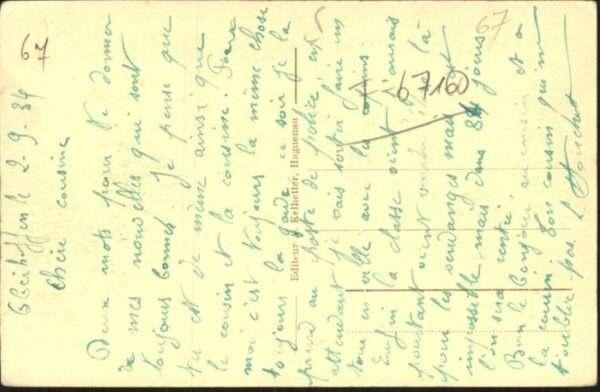 67
67
67160
le 2-9-34
Chère cousine
Deux mots pour te donner
de mes nouvelles qui sont
toujours bonnes je pense que
tu est de même ainsi que
le cousin et la cousine. Pour
moi c'est toujours la même chose
toujours la garde ce soir je la
prend au poste de police, en
attendant je vais sortir faire un
tour en ville avec les copains.
Enfin la classe vient
pourtant
pour les vendanges mais
impossible, mais dans 8 jours
l'on sera rentré.
Bien le bonjour au cousin et a
la cousine bon cousin qui ne
t'oublie pas.
Editeur Kelhetter, Haguenau